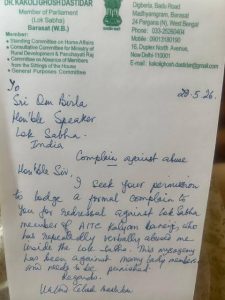 DR. KAKOLI GHOSH DASTIDAR
Member of Parliament
(Lok Sabha)
Barasat (W.B.)
Member:
• Standing Committee on Home Affairs
• Consultative Committee for Ministry of
Rural Development & Panchayati Raj
• Committee on Absence of Members
from the Sittings of the House
• General Purposes Committee
Digberia, Badu Road
Madhyamgram, Barasat
24 Pargana (N), West Bengal
Phone: 033-25260404
Mobile: 09013180196
16, Duplex North Avenue,
New Delhi-110001
E-mail: kakolighoshdastidar@gmail.com
28.5.26.
To
Sri Om Birla
Hon'ble Speaker
Lok Sabha.
India
Complain against abuse
Hon'ble Sir.
I seek your permission
to lodge a formal complain to
you for redressal against Lok Sabha
member of AITC Kalyan Banerji, who
has repeatedly verbally abused me
inside the Lok Sabha. This mysogyny
has been against many lady members
and needs to be punished.
Regards